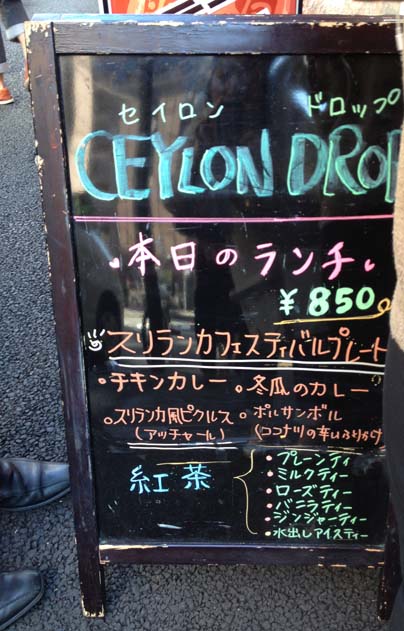 セイロン ドロップ
CEYLON DROP
本日のランチ
¥850
スリランカフェスティバルプレート
・チキンカレー ・冬瓜のカレー
・スリランカ風ピクルス ・ポルサンボル
(アッチャール) (ココナツの辛いふりかけ
紅茶
・プレーンティ
・ミルクティー
・ローズティー
・バニラティー
・ジンジャーティー
・水出しアイスティー